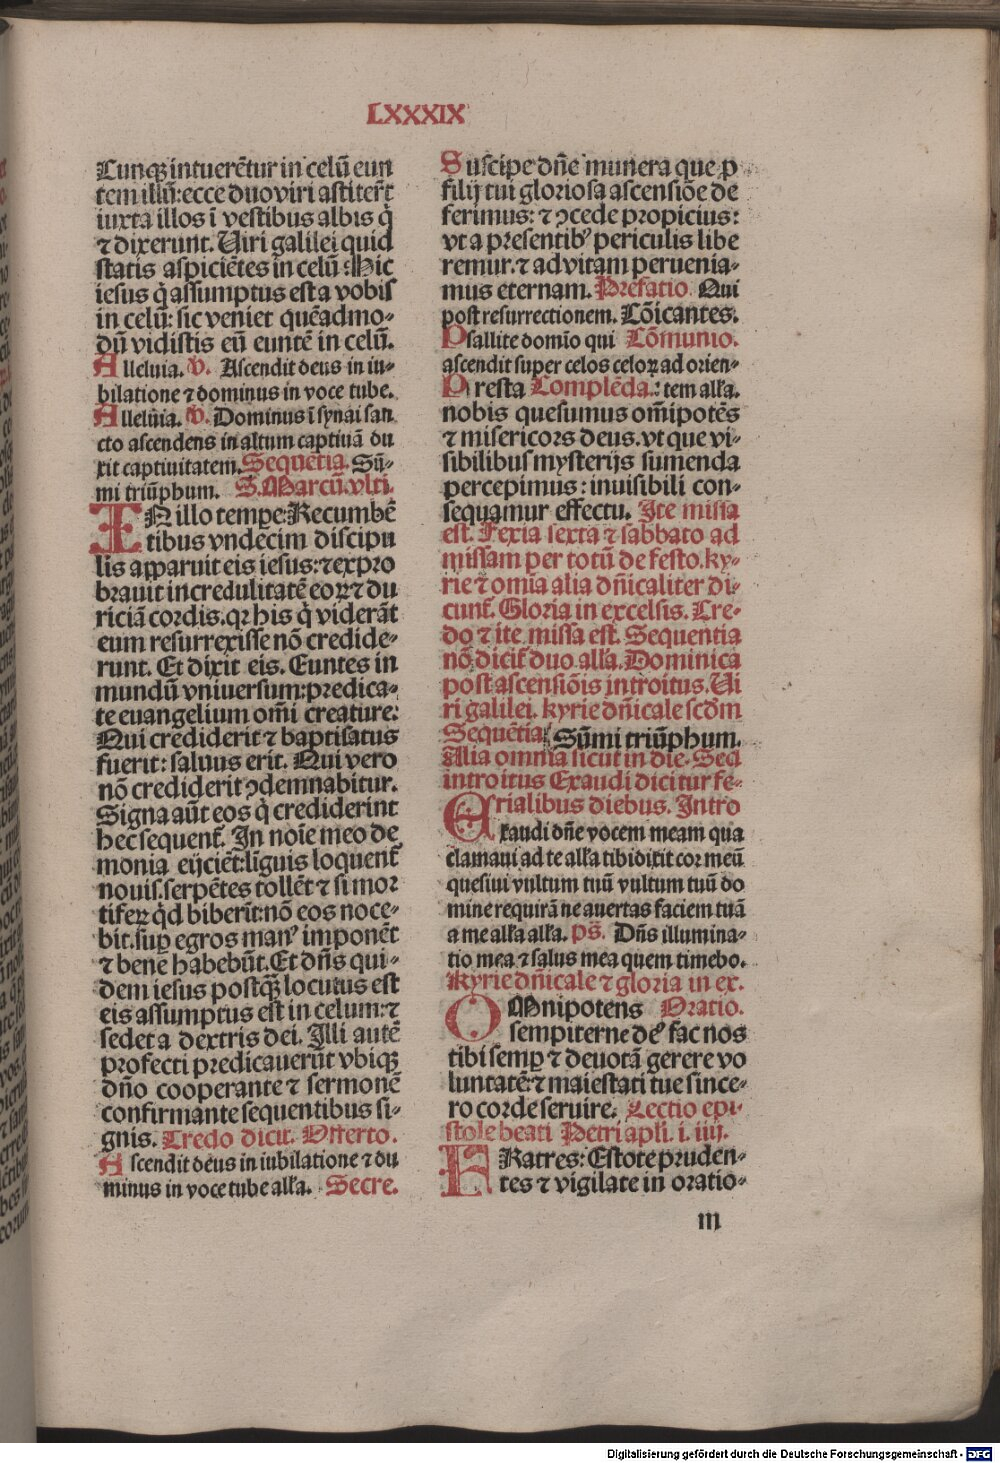 LXXXIX
Cunqꝫ intuerētur in celū eun
tem illū: ecce duo viri astiterūt
iuxta illos ī vestibus albis q̇
⁊ dixerunt. Uiri galilei quid
statis aspiciētes in celū: Hic
iesus q̇ assumptus est a vobis
in celū: sic veniet quēadmo-
dū vidistis eū euntē in celū.
Alleluia. V. Ascendit deus in iu-
bilatione ⁊ dominus in voce tube.
Alleluia. V. Dominus ī synai san
cto ascendens in altum captiuā du
xit captiuitatem. Sequētia. Sū-
mi triūphum. S. Marcū. vlti.
IN illo tempe: Recumbē
tibus vndecim discipu
lis apparuit eis iesus: ⁊ expro
brauit incredulitatē eoꝝ ⁊ du
riciā cordis. qꝛ his q̇ viderāt
eum resurrexisse nō credide-
runt. Et dixit eis. Euntes in
mundū vniuersum: predica-
te euangelium om̄i creature:
Qui crediderit ⁊ baptisatus
fuerit: saluus erit. Qui vero
nō crediderit ꝯdemnabitur.
Signa aūt eos q̇ crediderint
hec sequent̄. In noīe meo de
monia eijciēt: līguis loquent̄
nouis. serpētes tollēt ⁊ si mor
tiferꝝ q̇d biberīt: nō eos noce-
bit. suꝑ egros manꝰ imponēt
⁊ bene habebūt. Et dn̄s qui-
dem iesus postqꝫ locutus est
eis assumptus est in celum: ⁊
sedet a dextris dei. Illi autē
profecti predicauerūt vbiqꝫ
dn̄o cooperante ⁊ sermonē
confirmante sequentibus si-
gnis. Credo dicit. Offerto.
Ascendit deus in iubilatione ⁊ do
minus in voce tube alla. Secre.
Suscipe dn̄e munera que ꝓ
filij tui gloriosa ascensiōe de
ferimus: ⁊ ꝯcede propicius:
vt a presentibꝰ periculis libe
remur. ⁊ ad vitam peruenia-
mus eternam. Prefatio. Qui
post resurrectionem. Cōicantes.
Psallite domīo qui Cōmunio.
ascendit super celos celoꝝ ad orien-
Presta Complēda.: tem alla.
nobis quesumus om̄ipotēs
⁊ misericors deus. vt que vi-
sibilibus mysterijs sumenda
percepimus: inuisibili con-
sequamur effectu. Ite missa
est. Feria sexta ⁊ sabbato ad
missam per totū de festo. ky-
rie ⁊ omīa alia dn̄icaliter di-
cunt̄. Gloria in excelsis. Cre-
do ⁊ ite missa est. Sequentia
nō dicit̄ duo alla. Dominica
post ascensiōis introitus. Ui
ri galilei. kyrie dn̄icale scd̄m
Sequētia Sūmi triūphum.
Alia omnia sicut in die. Sed
introitus Exaudi dicitur fe-
rialibus diebus. Intro
Exaudi dn̄e vocem meam qua
clamaui ad te alla tibi dixit cor meū
quesiui vultum tuū vultum tuū do
mine requirā ne auertas faciem tuā
a me alla alla. ps̄. Dn̄s illumina-
tio mea ⁊ salus mea quem timebo.
Kyrie dn̄icale ⁊ gloria in ex.
OMnipotens Oratio.
sempiterne deꝰ fac nos
tibi semꝑ ⁊ deuotā gerere vo
luntatē: ⁊ maiestati tue since-
ro corde seruire. Lectio epi-
stole beati Petri apl̄i. i. iiij.
FRatres: Estote pruden-
tes ⁊ vigilate in oratio-
m
Digitalisierung gefördert durch die Deutsche Forschungsgemeinschaft - DFG